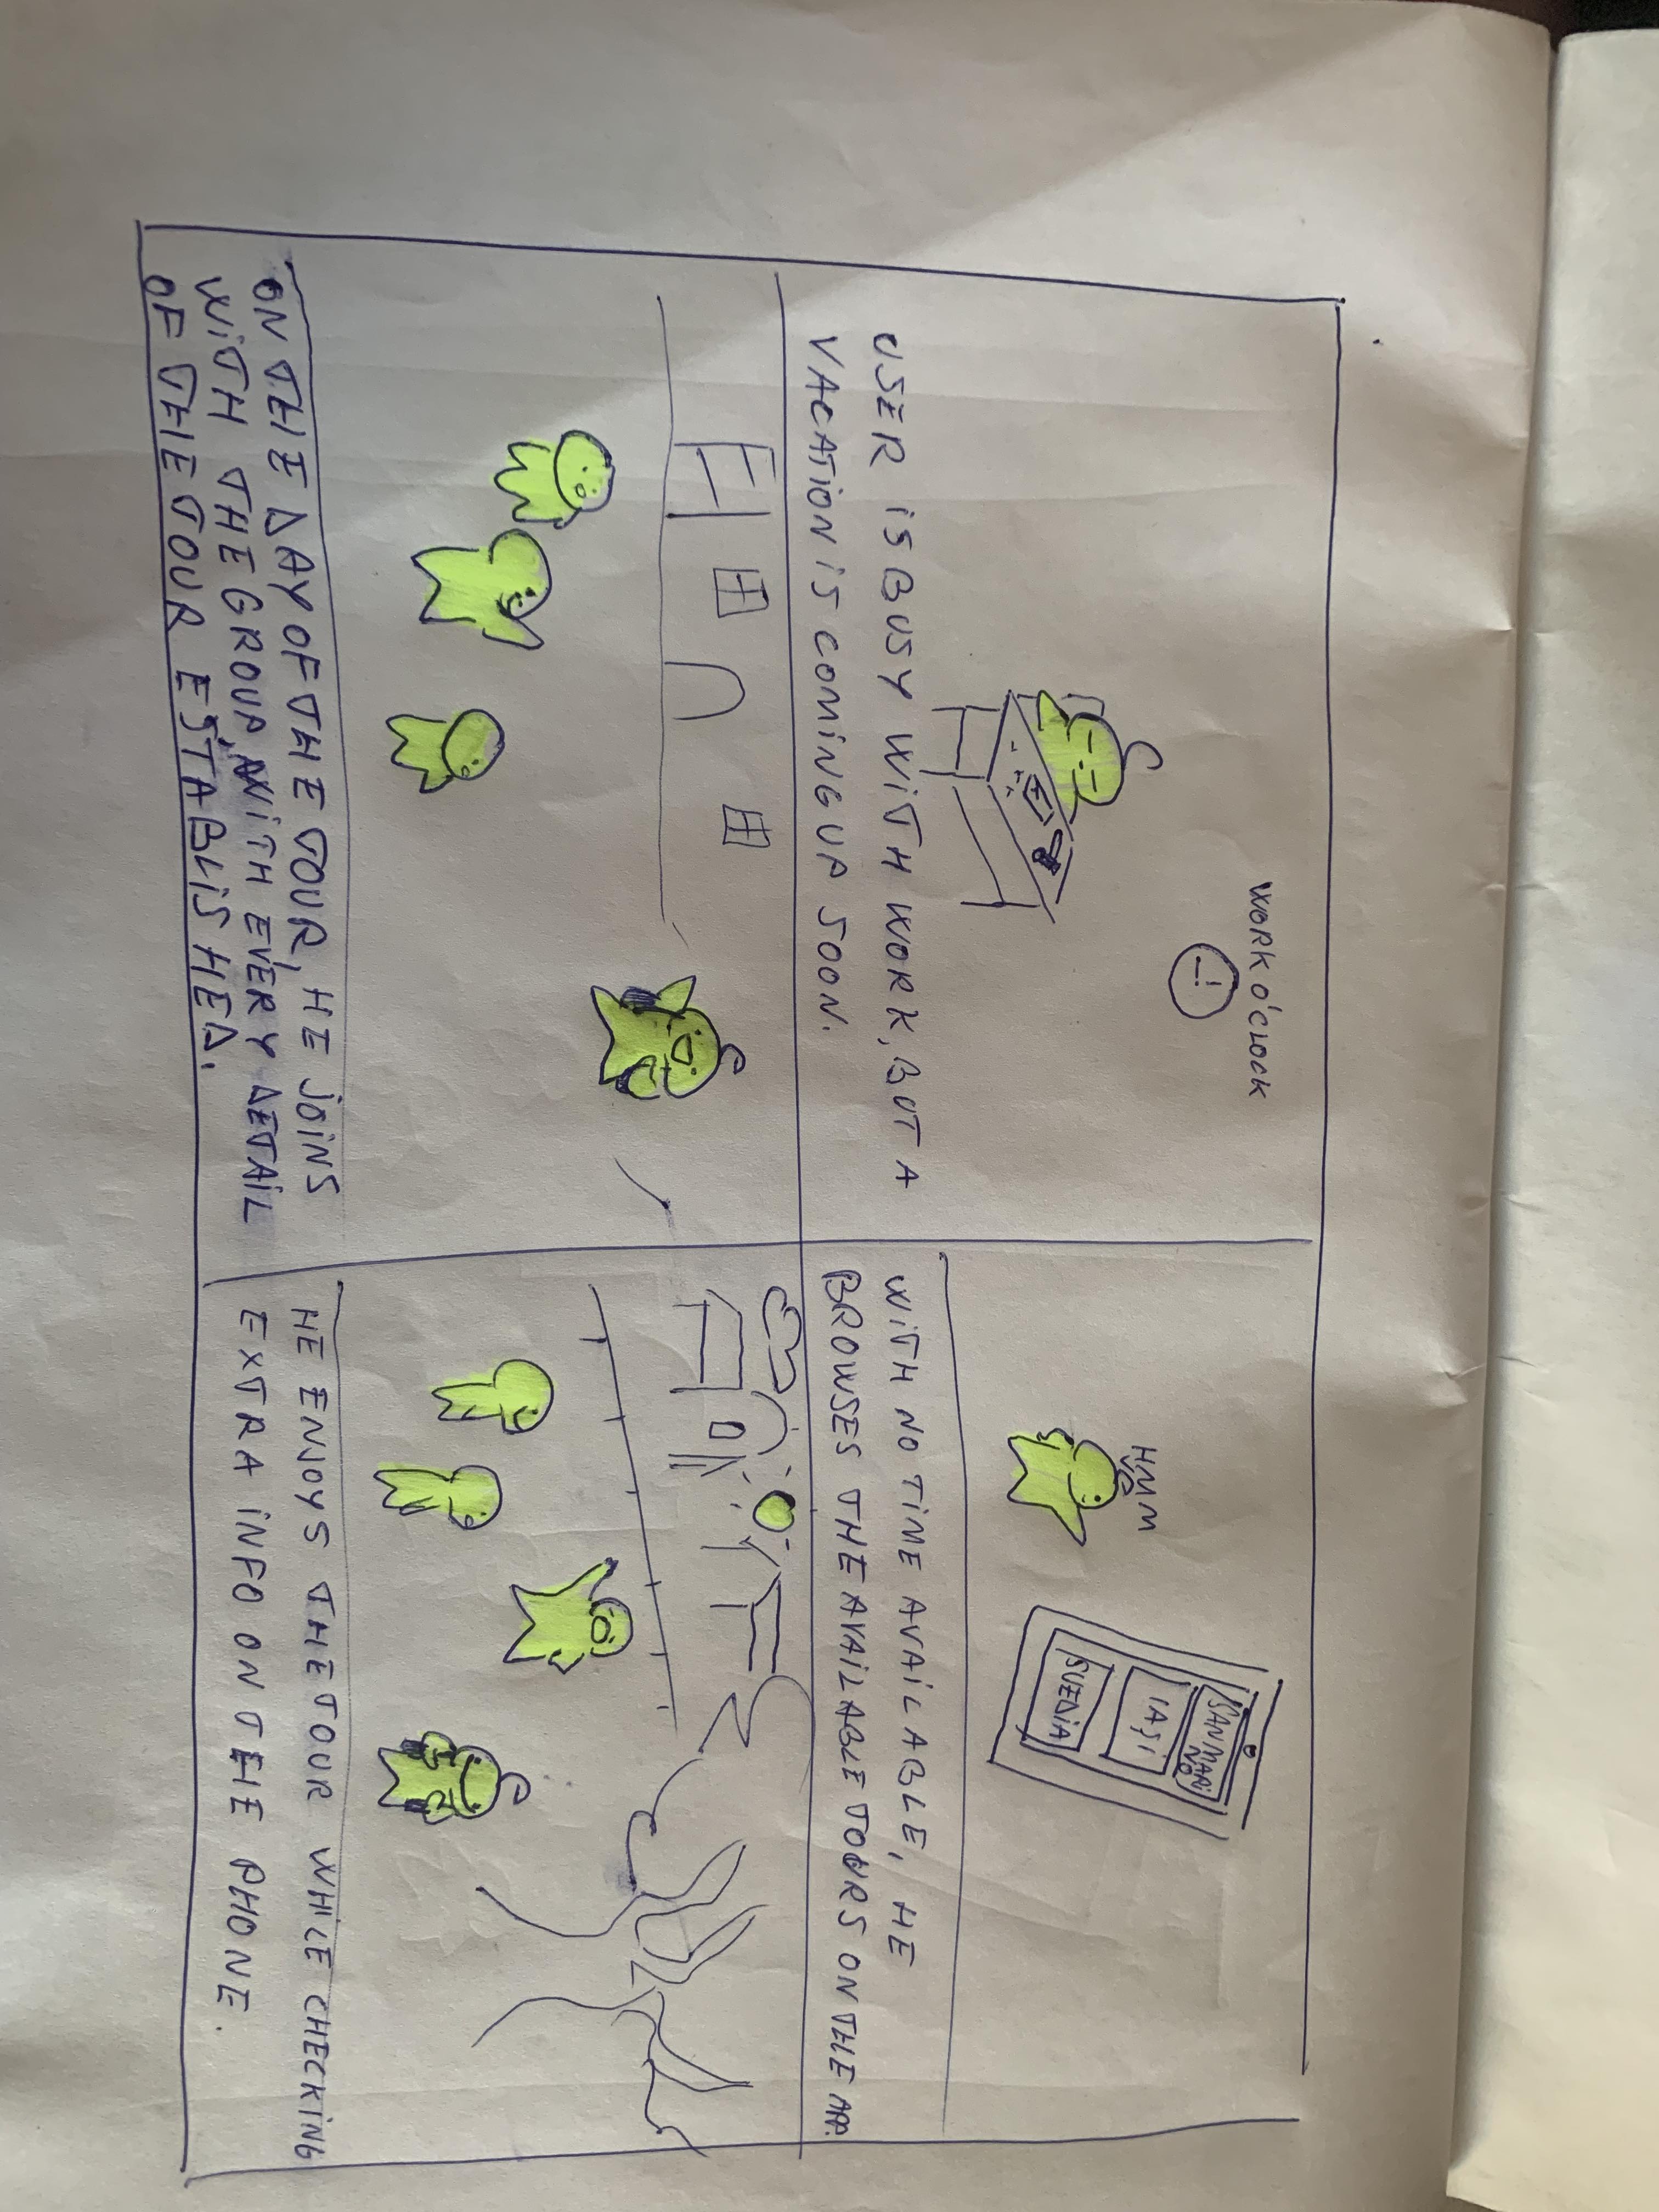 WORK O'CLOCK
USER IS BUSY WITH WORK, BUT A
VACATION IS COMING UP SOON.
HMM
SAN MARI
NO
IAȘI
SUEDIA
WITH NO TIME AVAILABLE, HE
BROWSES THE AVAILABLE TOURS ON THE APP.
ON THE DAY OF THE TOUR, HE JOINS
WITH THE GROUP, WITH EVERY DETAIL
OF THE TOUR ESTABLISHED.
HE ENJOYS THE TOUR WHILE CHECKING
EXTRA INFO ON THE PHONE.